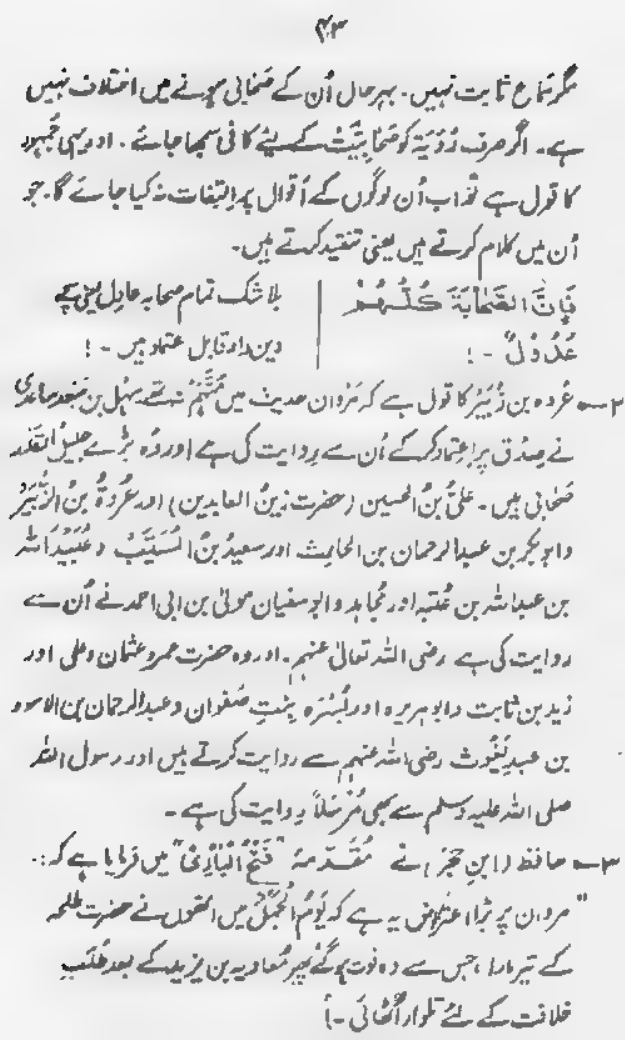 ۴۳
مگر سَماع ثابت نہیں۔ بہرحال اُن کے صَحابی ہونے میں اختلاف نہیں
ہے۔ اگر صرف رُؤیَۃ کو صَحَابِیَّتْ کے لیئے کافی سمجھا جائے۔ اور یہی جُمہور
کا قول ہے تو اب اُن لوگوں کے اَقوال پر اِلتِفات نہ کیا جائے گا۔ جو
اُن میں کلام کرتے ہیں یعنی تنقید کرتے ہیں۔
فَاِنَّ الصَّحَابَۃَ کُلُّہُمْ | بلاشک تمام صحابہ عادِل یعنی سچے
عُدُوْلٌ ۔ ! | دین دار قابل اعتماد ہیں ۔ !
۲۔ عُروہ بن زُبَیْر کا قول ہے کہ مَرْوان حدیث میں مُتَّہَمْ نہ تھے۔ سہل بن سَعْد ساعدی
نے صِدْق پر اِعتماد کر کے اُن سے رِوایت کی ہے اور وُہ بڑے جلیلُ القدر
صَحابی ہیں۔ علیُّ بنُ الحسین (حضرت زینُ العابدین) اور عُروۃُ بنُ الزُّبَیْر
و ابوبکر بن عبدالرحمان بن الحارث اور سعیدُ بنُ المُسَیَّبْ و عُبَیْدُاللہ
بن عبداللہ بن عُتبہ اور مُجاہد و ابوسفیان مولیٰ بن ابی احمد نے اُن سے
روایت کی ہے رضی اللہ تعالیٰ عنہم۔ اور وہ حضرت عمر و عثمان و علی اور
زید بن ثابت و ابوہریرہ اور بُسْرَہ بنتِ صَفْوان و عبدالرحمان بن الاسود
بن عبدِ یَغُوث رضی اللہ عنہم سے روایت کرتے ہیں اور رسول اللہ
صلی اللہ علیہ وسلم سے بھی مُرْسَلاً رِوایت کی ہے ۔
۳۔ حافظ (ابنِ حجر) نے مُقَدّمہ "فَتْحُ الْبَارِیْ" میں فرمایا ہے کہ :۔
"مروان پر بڑا اعتراض یہ ہے کہ یَوْمُ الْجَمَلْ میں انھوں نے حضرت طلحہ
کے تیر مارا، جس سے وہ فوت ہو گئے پھر مُعاویہ بن یزید کے بعد طَلَبِ
خلافت کے لئے تلوار اُٹھائی ۔